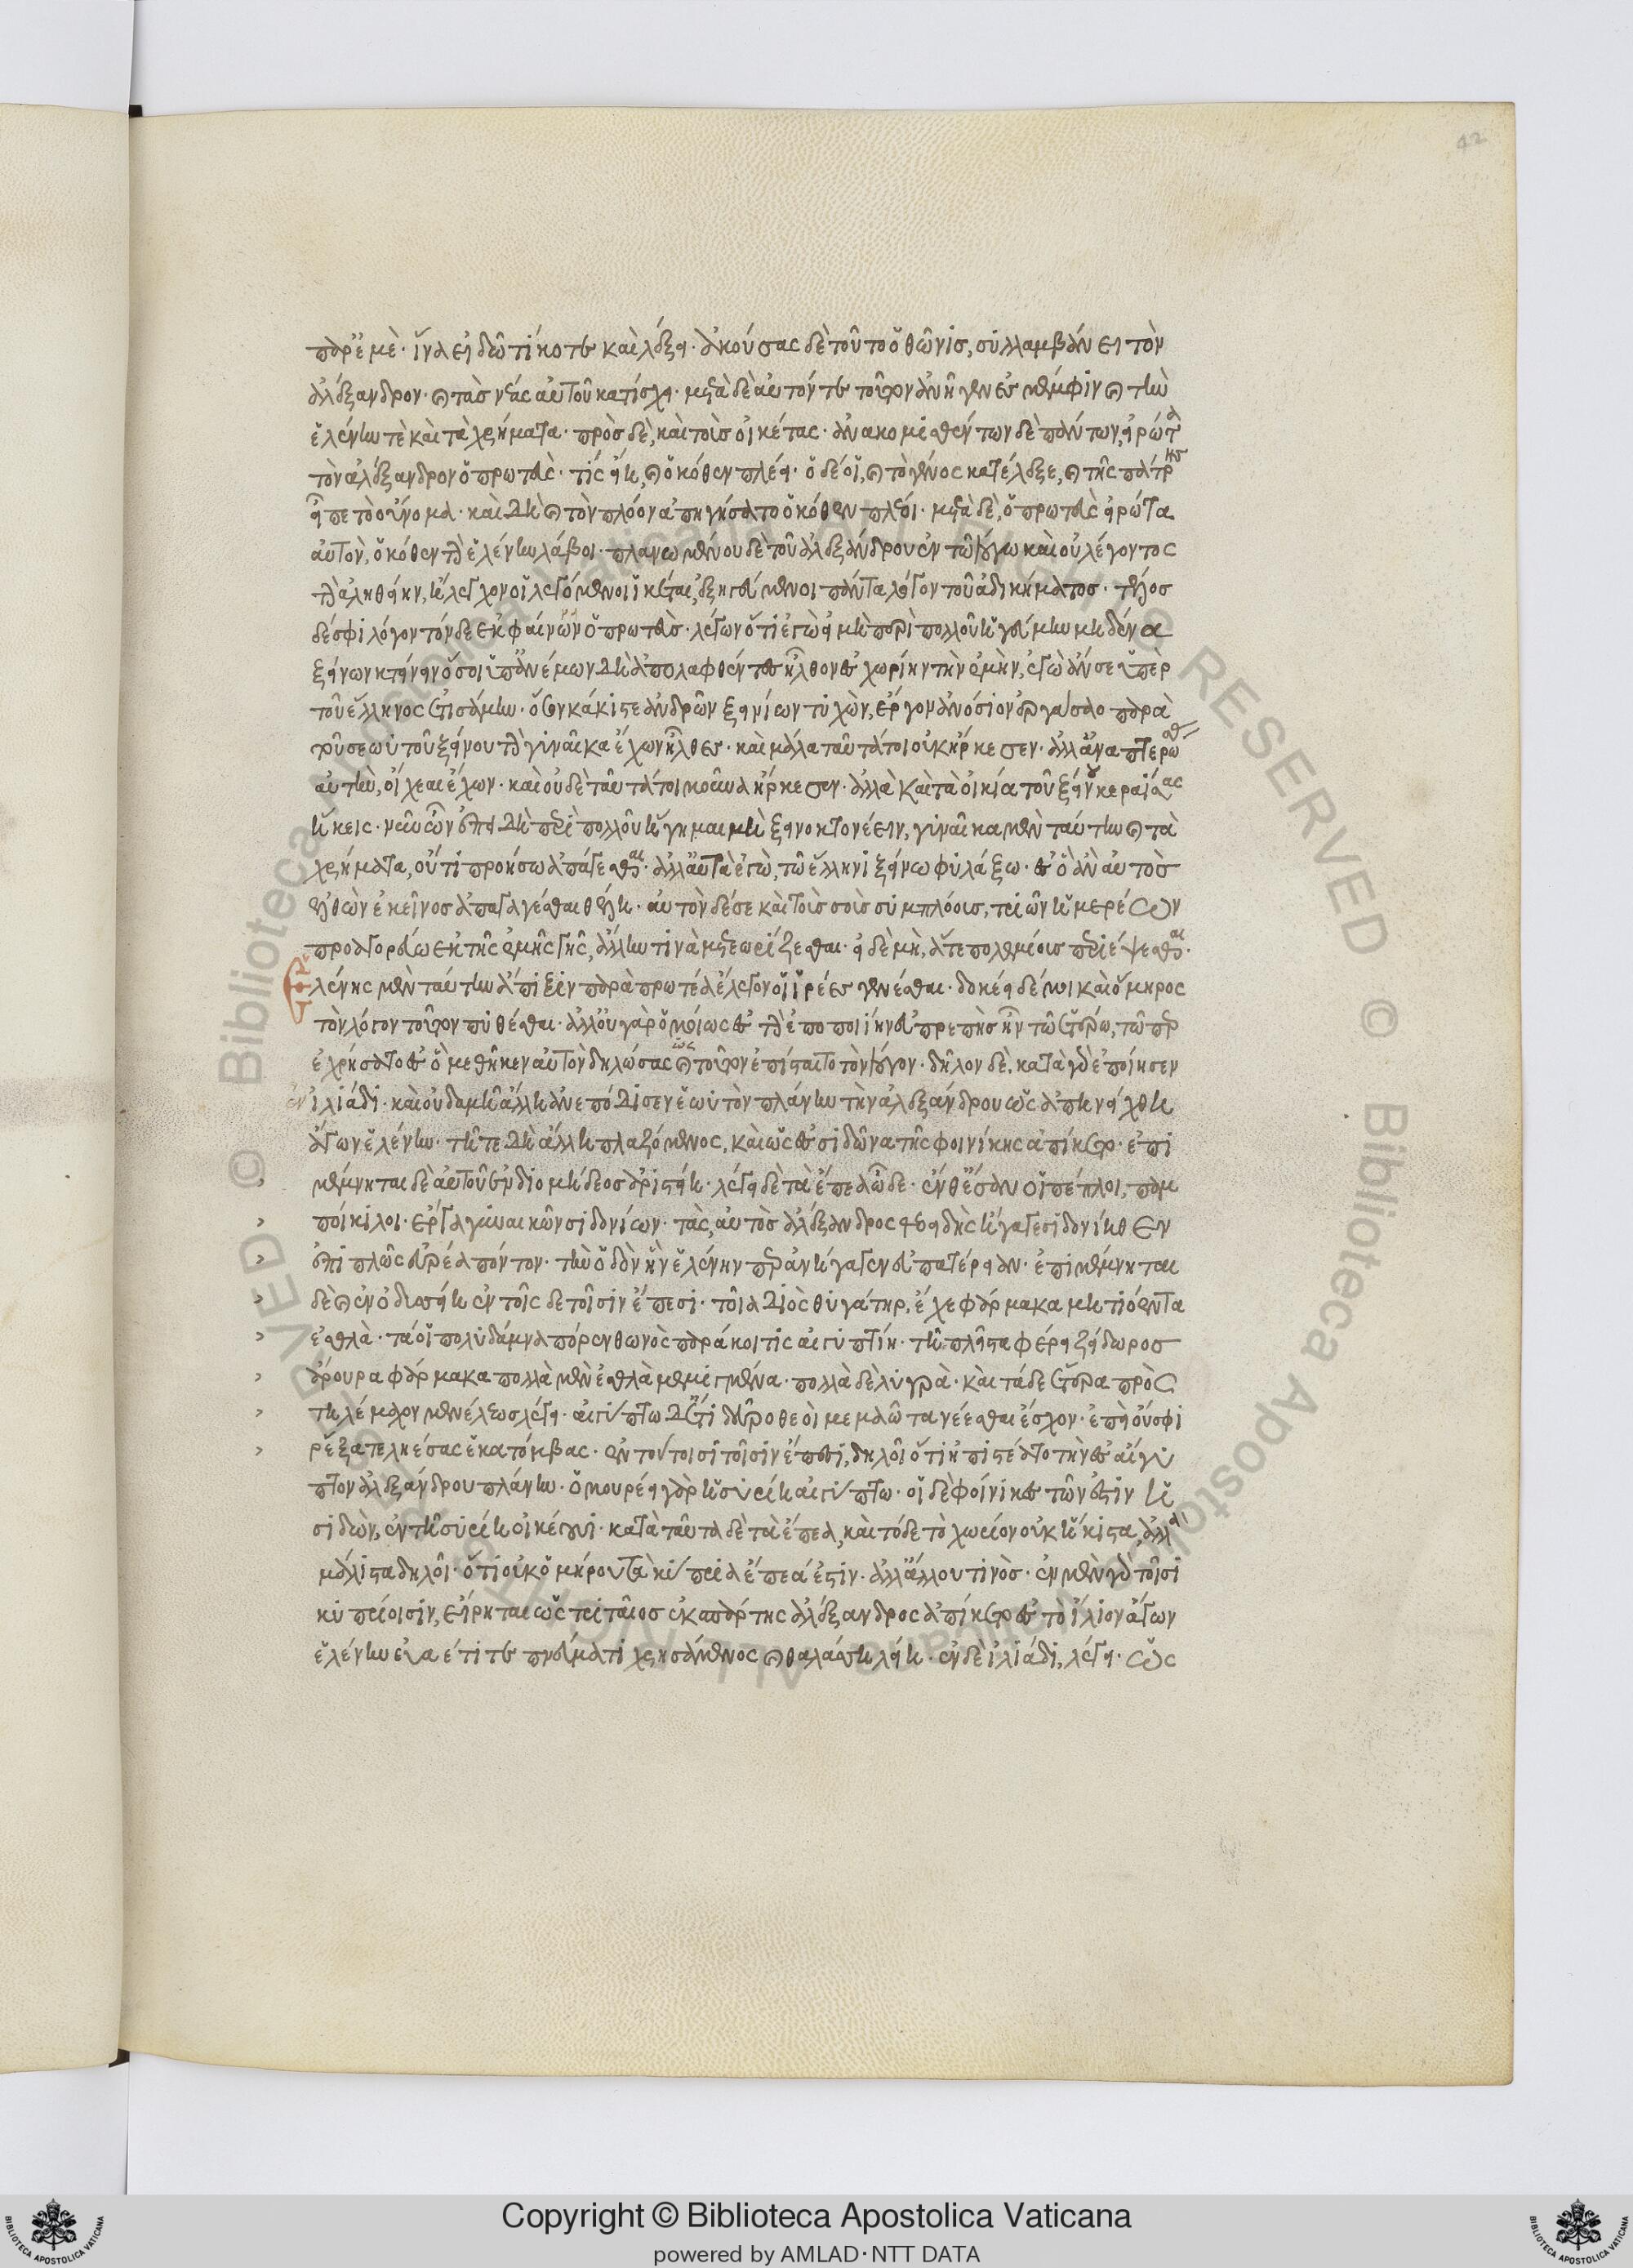 42
παρ' ἐμέ· ἵνα εἰδῶ τί κοτε καὶ λέξει· ἀκούσας δὲ τοῦτο ὁ θῶνις, συλλαμβάνει τὸν
ἀλέξανδρον· καὶ τὰς νέας αὐτοῦ κατίσχει· μετὰ δὲ αὐτόν τε τοῦτον ἀνήγαγεν ἐς μέμφιν καὶ τὴν
ἑλένην τὲ καὶ τὰ χρήματα· πρὸς δὲ, καὶ τοὺς ἱκέτας· ἀνακομισθέντων δὲ πάντων, εἰρώτα
τὸν ἀλέξανδρον ὁ πρωτεὺς· τίς εἴη, καὶ ὁκόθεν πλέει· ὁ δέ οἱ, καὶ τὸ γένος κατέλεξε, καὶ τῆς πάτρης
εἶπε τὸ οὔνομα· καὶ δὴ καὶ τὸν πλόον ἀπηγήσατο ὁκόθεν πλέοι· μετὰ δὲ, ὁ πρωτεὺς εἰρώτα
αὐτὸν, ὁκόθεν τὴν ἑλένην λάβοι· πλανωμένου δὲ τοῦ ἀλεξάνδρου ἐν τῷ λόγῳ καὶ οὐ λέγοντος
τὴν ἀληθείην, ἤλεγχον οἱ λεγόμενοι ἱκέται, ἐξηγεύμενοι πάντα λόγον τοῦ ἀδικήματος· τέλος
δέ σφι λόγον τόνδε ἐκφαίνων ὁ πρωτεὺς· λέγων ὅτι ἐγὼ εἰ μὴ περὶ πολλοῦ ἡγεύμην μηδένα
ξείνων κτείνειν ὅσοι ὑπ' ἀνέμων δὴ ἀπολαφθέντες ἦλθον ἐς χώρην τὴν ἐμὴν, ἐγὼ ἄν σε ὑπὲρ
τοῦ ἕλληνος ἐτισάμην· ὃς ὦ κάκιστε ἀνδρῶν ξεινίων τυχὼν, ἔργον ἀνόσιον ἐργάσαο παρὰ
τοῦ σεωυτοῦ ξείνου τὴν γυναῖκα ἔχων ἦλθες· καὶ μάλα ταῦτά τοι οὐκ ἤρκεσεν· ἀλλ' ἀναπτερώσας
αὐτὴν, οἴχεαι ἔχων· καὶ οὐδὲ ταῦτά τοι μοῦνα ἤρκεσεν· ἀλλὰ καὶ τὰ οἰκία τοῦ ξείνου κεραΐσας
ἥκεις· νῦν ὦν ἐπειδὴ περὶ πολλοῦ ἥγημαι μὴ ξεινοκτονέειν, γυναῖκα μὲν ταύτην καὶ τὰ
χρήματα, οὔ τι προήσω ἀπάγεσθαι· ἀλλ' αὐτὰ ἐγὼ, τῷ ἕλληνι ξείνῳ φυλάξω· ἐς ὃ ἂν αὐτὸς
ἐλθὼν ἐκεῖνος ἀπαγαγέσθαι θέλῃ· αὐτὸν δέ σε καὶ τοὺς σοὺς συμπλόους, τριῶν ἡμερέων
προαγορεύω ἐκ τῆς ἐμῆς γῆς, ἄλλην τινὰ μετορμίζεσθαι· εἰ δὲ μὴ, ἅτε πολεμίους περιέψεσθαι·
ἑλένης μὲν ταύτην ἄπιξιν παρὰ πρωτέα ἔλεγον οἱ ἱρέες γενέσθαι· δοκέει δέ μοι καὶ ὅμηρος
τὸν λόγον τοῦτον πυθέσθαι· ἀλλ' οὐ γὰρ ὁμοίως ἐς τὴν ἐποποιίην εὐπρεπὴς ἦν τῷ ἑτέρῳ, τῷ περ
ἐχρήσατο ἐς ὃ μετῆκεν αὐτὸν δηλώσας ὡς καὶ τοῦτον ἐπίσταιτο τὸν λόγον· δῆλον δὲ, κατὰ γὰρ ἐποίησεν
ἐν ἰλιάδι· καὶ οὐδαμῇ ἄλλῃ ἀνεπόδισεν ἑωυτὸν πλάνην τὴν ἀλεξάνδρου ὡς ἀπηνείχθη
ἄγων ἑλένην· τῇ τε δὴ ἄλλῃ πλαζόμενος, καὶ ὡς ἐς σιδῶνα τῆς φοινίκης ἀπίκετο· ἐπι
μέμνηται δὲ αὐτοῦ ἐν διομήδεος ἀριστείῃ· λέγει δὲ τὰ ἔπεα ὧδε· ἔνθ' ἔσαν οἱ πέπλοι, παμ
ποίκιλοι· ἔργα γυναικῶν σιδονίων· τὰς, αὐτὸς ἀλέξανδρος θεοειδὴς ἤγαγε σιδονίηθεν
ἐπιπλὼς εὐρέα πόντον· τὴν ὁδὸν ἣν ἑλένην περ ἀνήγαγεν εὐπατέρειαν· ἐπιμέμνηται
δὲ καὶ ἐν ὀδυσσείῃ ἐν τοῖσδε τοῖσιν ἔπεσι· τοῖα διὸς θυγάτηρ, ἔχε φάρμακα μητιόεντα
ἐσθλὰ· τά οἱ πολύδαμνα πόρεν θωνὸς παράκοιτις αἰγυπτίη· τῇ πλεῖστα φέρει ζείδωρος
ἄρουρα φάρμακα πολλὰ μὲν ἐσθλὰ μεμιγμένα· πολλὰ δὲ λυγρὰ· καὶ τάδε ἕτερα πρὸς
τηλέμαχον μενέλεως λέγει· αἰγύπτῳ μ' ἔτι δεῦρο θεοὶ μεμαῶτα νέεσθαι ἔσχον· ἐπεὶ οὔ σφι
ῥέξα τεληέσσας ἑκατόμβας· ἐν τούτοισι τοῖσιν ἔπεσι, δηλοῖ ὅτι ἠπίστατο τὴν ἐς αἴγυ
πτον ἀλεξάνδρου πλάνην· ὁμουρέει γὰρ ἡ συρίη αἰγύπτῳ· οἱ δὲ φοίνικες τῶν ἐστιν ἡ
σιδὼν, ἐν τῇ συρίῃ οἰκέουσι· κατὰ ταῦτα δὲ τὰ ἔπεα, καὶ τόδε τὸ χωρίον οὐκ ἥκιστα, ἀλλὰ
μάλιστα δηλοῖ· ὅτι οὐκ ὁμήρου τὰ κύπρια ἔπεά ἐστιν· ἀλλ' ἄλλου τινὸς· ἐν μὲν γὰρ τοῖσι
κυπρίοισιν, εἴρηται ὡς τριταῖος ἐκ σπάρτης ἀλέξανδρος ἀπίκετο ἐς τὸ ἴλιον ἄγων
ἑλένην εὐαέϊ τε πνεύματι χρησάμενος καὶ θαλάσσῃ λείῃ· ἐν δὲ ἰλιάδι, λέγει· ὡς
Copyright © Biblioteca Apostolica Vaticana
powered by AMLAD·NTT DATA